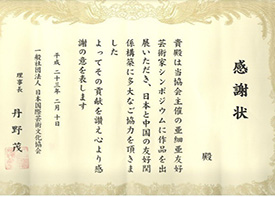 感謝状
殿
貴殿は当協会主催の亜細亜友好
芸術家シンポジウムに作品を出
展いただき、日本と中国の友好関
係構築に多大なご協力を頂きま
した
よってその貢献を讃え心より感
謝の意を表します
平成二十三年二月十日
一般社団法人日本国際芸術文化協会
理事長 丹野茂